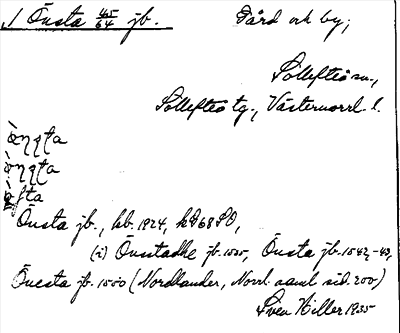 1 Önsta 45/64 jb. Gård och by;
Sollefteå sn.,
Sollefteå tg., Västernorrl. l.
Önsta jb., kb. 1924, kD68SO,
(i) Önstadhe jb. 1535, Önsta jb. 1542, -43,
Önesta jb. 1550 (Nordlander, Norrl. saml. sid. 200)
Sven Hiller 1935